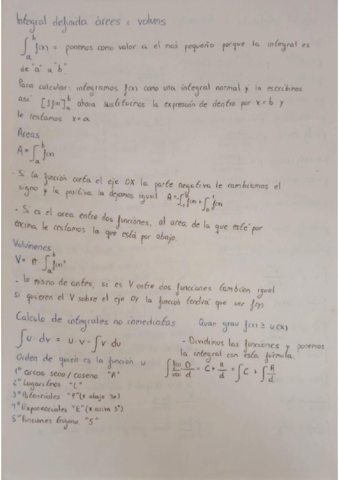 Integral definida àrees i volums
∫ₐᵇ f(x) = ponemos como valor a el más pequeño porque la integral es
de "a" a "b"
Para calcular: integramos f(x) como una integral normal y la escribimos
así [ ]ₐᵇ ahora sustituimos la expresión de dentro por x = b y
le restamos x = a
Àreas
A = ∫ₐᵇ f(x)
- Si la función corta el eje OX la parte negativa le cambiamos el
signo y la positiva la dejamos igual
- Si es el area entre dos funciones, al area de la que esté por
encima le restamos la que está por abajo.
Volúmenes
V = π ∫ₐᵇ f(x)²
- lo mismo de antes, si es V entre dos funciones también igual
si quieren el V sobre el eje OY la función tendrá que ser f(y)
Calculo de integrales no inmediatas
Quan grau f(x) ≥ u(x)
∫ u · dv = u v - ∫ v du
- Dividimos las funciones y ponemos
la integral con esta fórmula.
Orden de quien es la función u
= C + R/d = ∫ C + ∫ R/d
1º arcos seno / coseno "A"
2º Logaritmos "L"
3º Potenciales "P" (x abajo 3º)
4º Exponenciales "E" (x arriba 3º)
5º Funciones trigono "S"